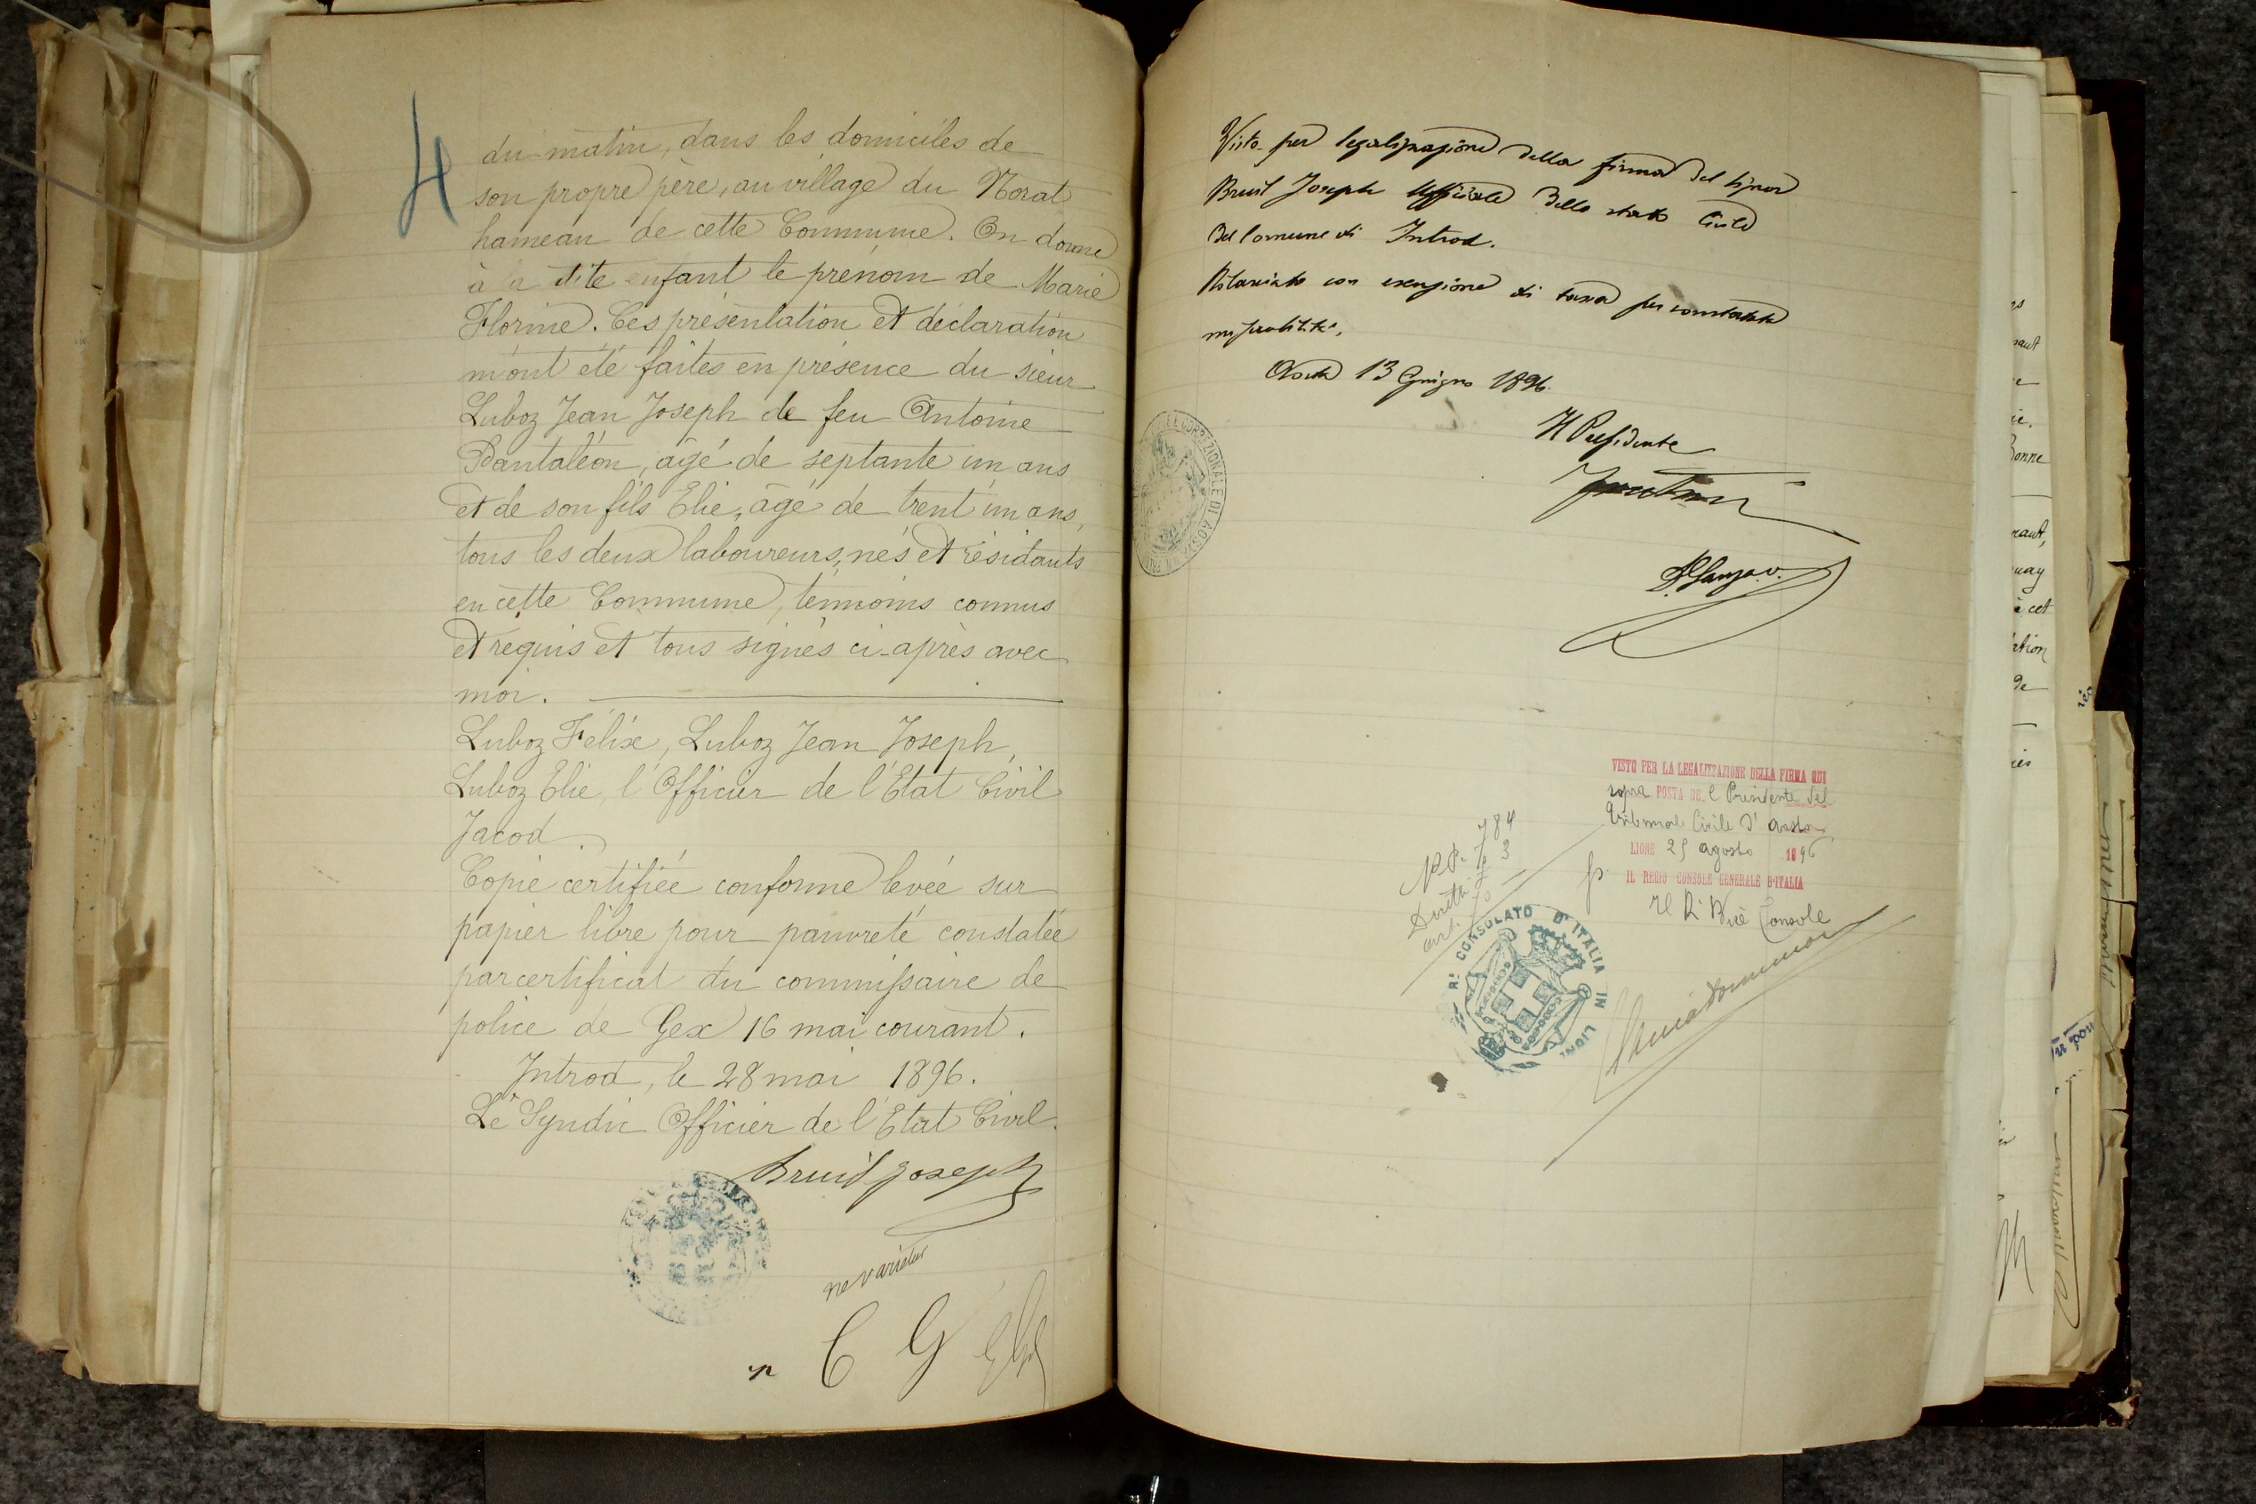 4
du matin, dans les domiciles de
son propre père, au village du Norat
hameau de cette Commune. On donne
à la dite enfant le prénom de Marie
Florine. Ces présentation et déclaration
m'ont été faites en présence du sieur
Luboz Jean Joseph de feu Antoine
Pantaléon, âgé de septante un ans
et de son fils Elie, âgé de trent'un ans,
tous les deux laboureurs, nés et résidants
en cette Commune, témoins connus
et requis et tous signés ci-après avec
moi.
Luboz Félix, Luboz Jean Joseph,
Luboz Elie, l'Officier de l'Etat Civil
Jacod.
Copie certifiée conforme levée sur
papier libre pour pauvreté constatée
par certificat du commissaire de
police de Gex 16 mai courant.
Introd, le 28 mai 1896.
Le Syndic Officier de l'Etat Civil.
Bruil Joseph
ne varietur
Visto per legalizzazione della firma del Signor
Bruil Joseph Ufficiale dello stato Civile
del Comune di Introd.
Rilasciato con esenzione di tassa per constatata
Aosta 13 Giugno 1896.
Il Presidente
VISTO PER LA LEGALIZZAZIONE DELLA FIRMA QUI
sopra POSTA DEL Presidente del
Tribunale Civile d'Aosta
LIONE 25 agosto 1896
p. IL REGIO CONSOLE GENERALE D'ITALIA
Il Rº Vice Console
N. P. 784
R. CONSOLATO D'ITALIA IN LIONE